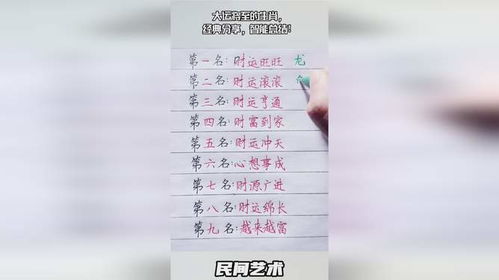 大运将至的生肖,
经典分享，智能总结!
第一名:财运旺旺 龙
第二名:财运滚滚
第三名:财运亨通
第四名:财富到家
第五名:财运冲天
第六名:心想事成
第七名:财源广进
第八名:财运绵长
第九名:越来越富
民间艺术